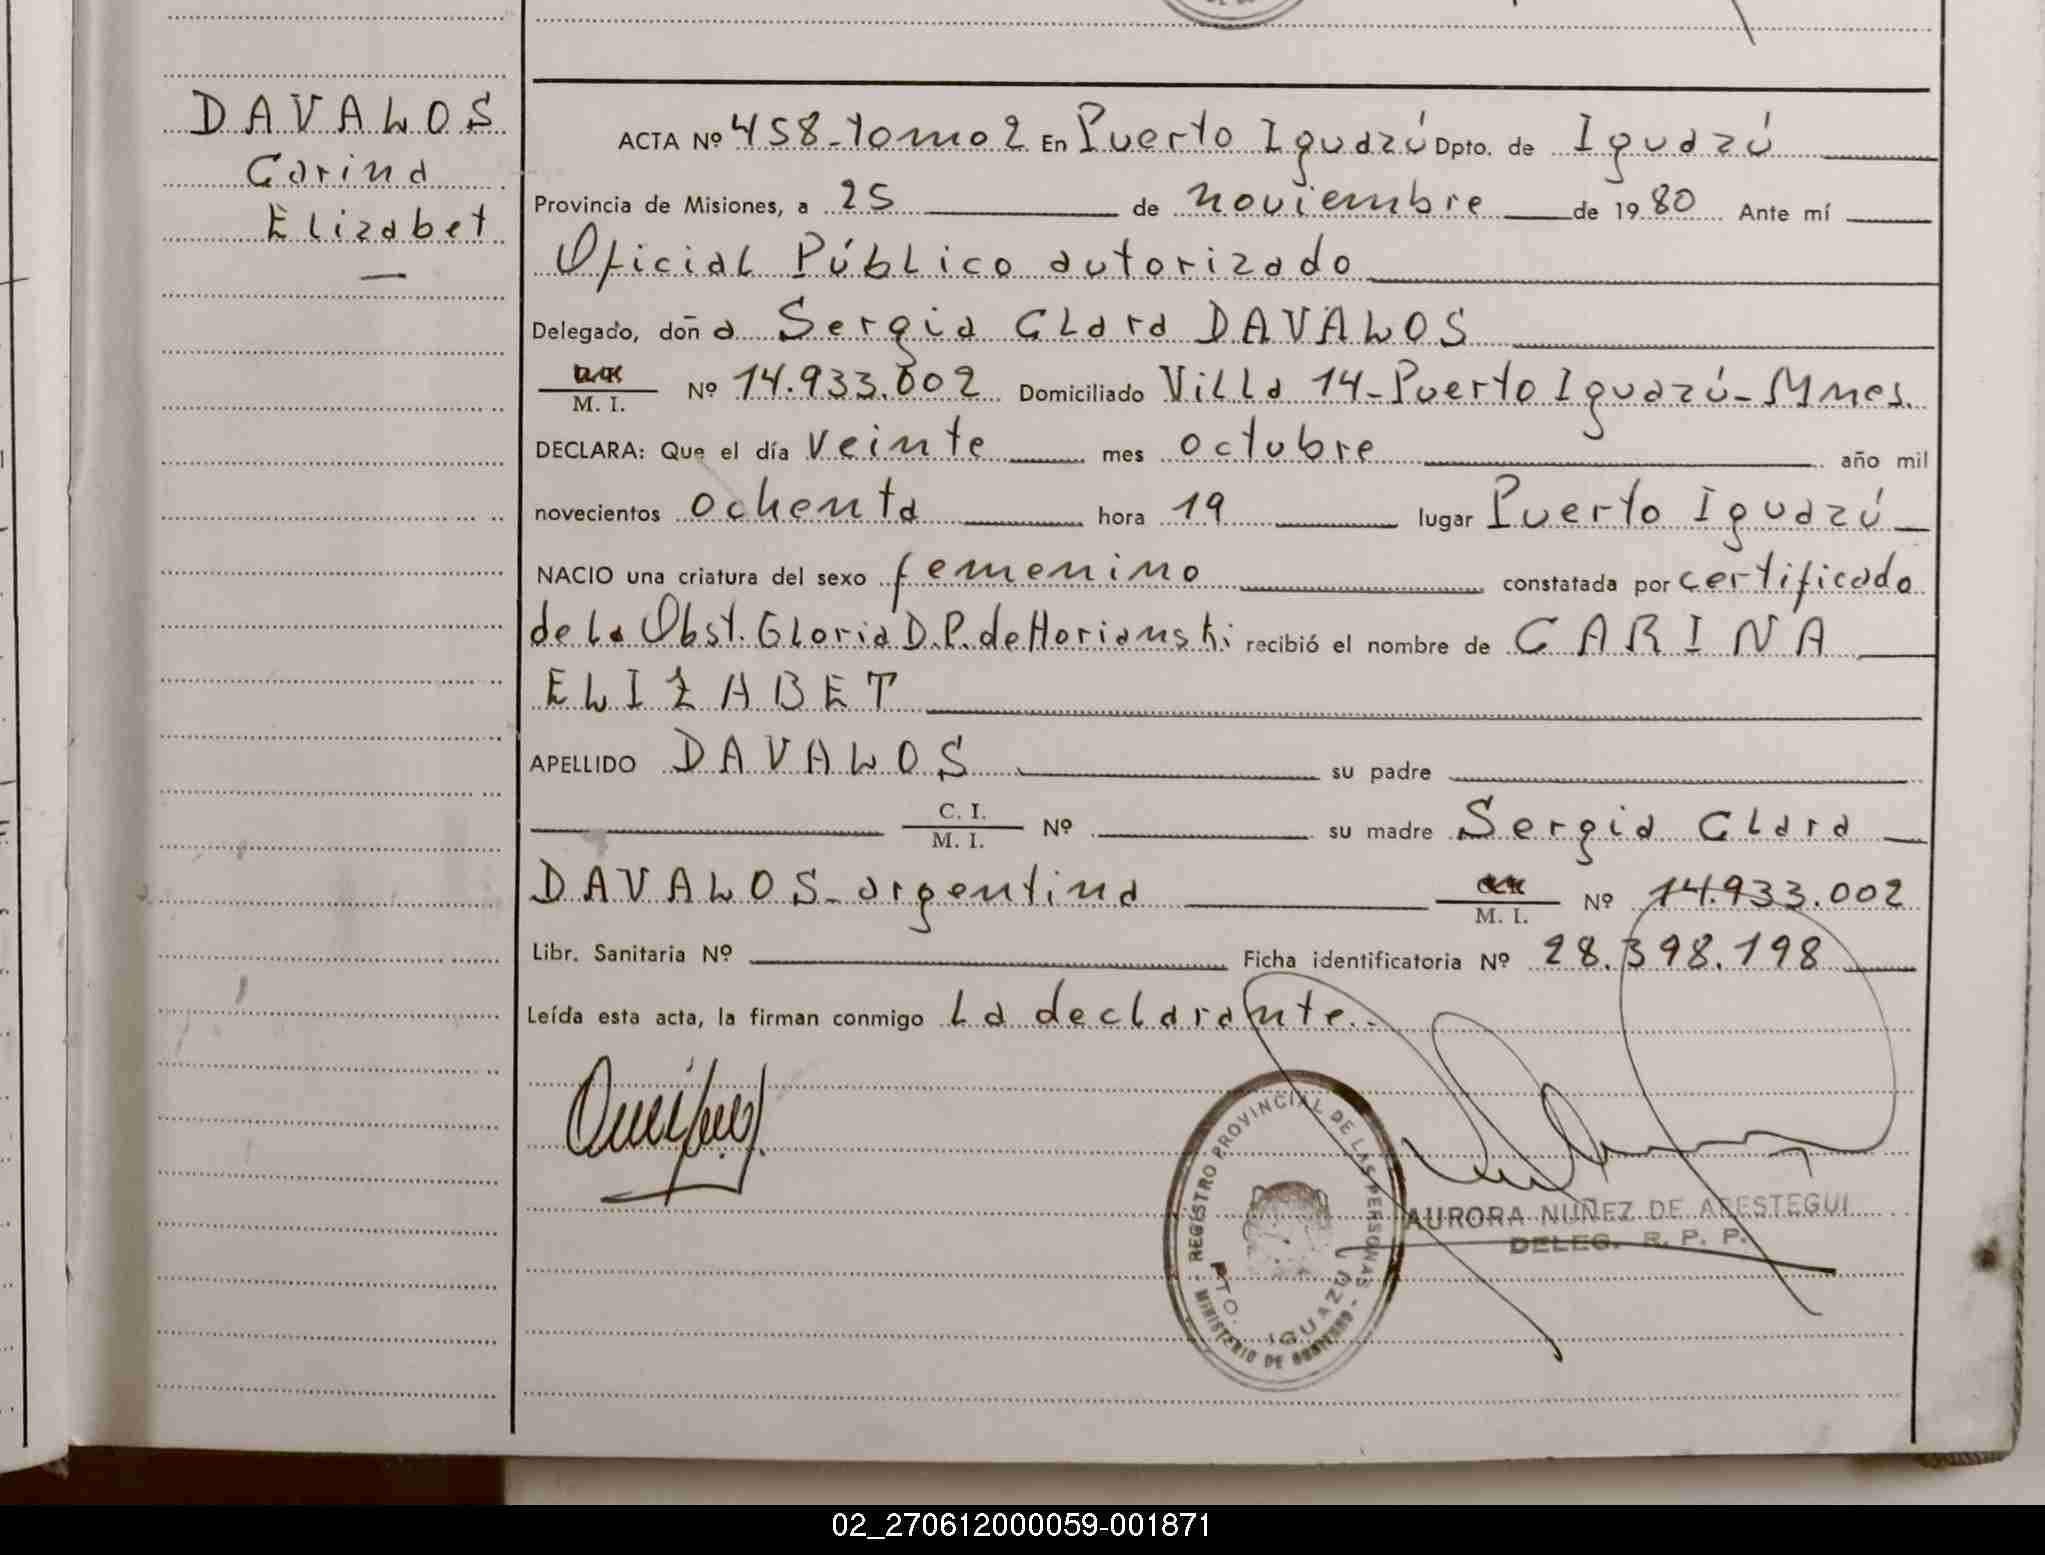 DAVALOS
Carina
Elizabet
ACTA Nº 458-tomo 2 En Puerto Iguazú Dpto. de Iguazú
Provincia de Misiones, a 25 de noviembre de 1980 Ante mí
Oficial Público autorizado
Delegado, doña Sergia Clara DAVALOS
M. I. Nº 14.933.002 Domiciliado Villa 14-Puerto Iguazú-Mnes.
DECLARA: Que el día veinte mes octubre año mil
novecientos ochenta hora 19 lugar Puerto Iguazú
NACIO una criatura del sexo femenino constatada por certificado
de la Obst. Gloria D.P. de Horianski recibió el nombre de CARINA
ELIZABET
APELLIDO DAVALOS su padre
C. I. M. I. Nº su madre Sergia Clara
DAVALOS-argentina M. I. Nº 14.933.002
Libr. Sanitaria Nº Ficha identificatoria Nº 28.398.198
Leída esta acta, la firman conmigo la declarante.
REGISTRO PROVINCIAL DE LAS PERSONAS
PTO. IGUAZU
MINISTERIO DE GOBIERNO
AURORA NUÑEZ DE ARESTEGUI
DELEG. R. P. P.
02_270612000059-001871